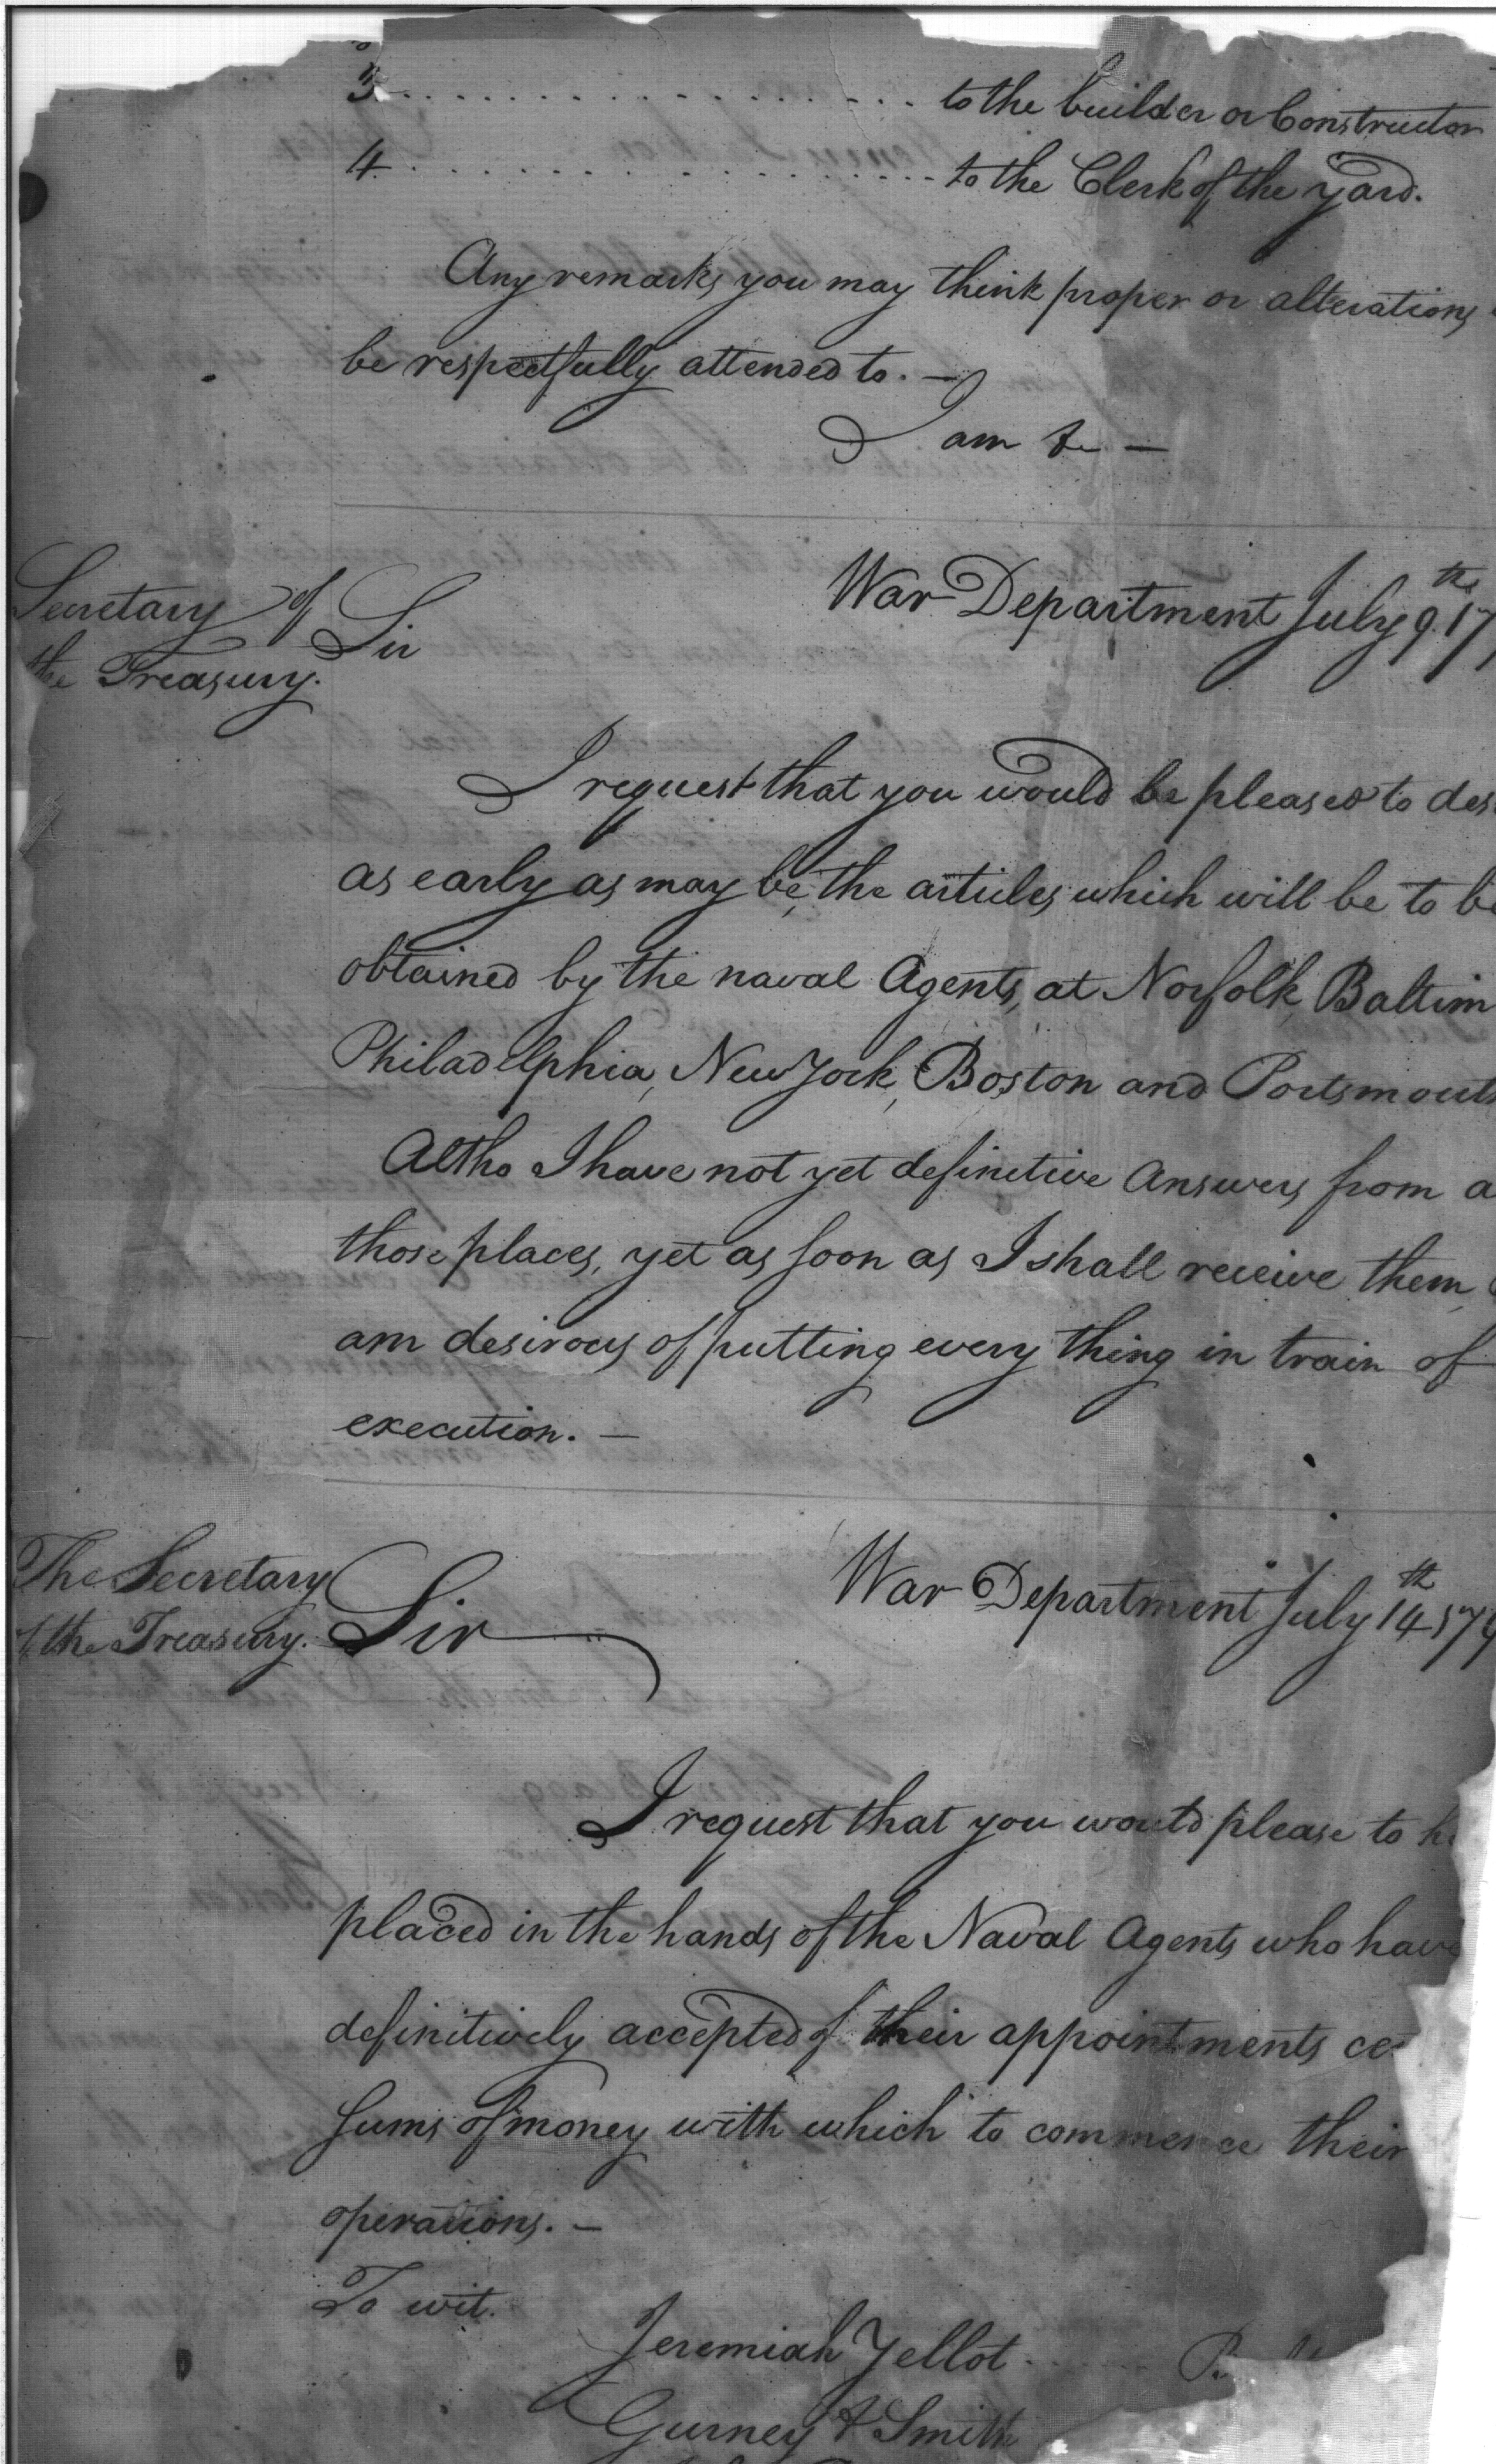 3 . . . . . . . . . . . . . . . . . . to the builder or Constructor
4 . . . . . . . . . . . . . . . . . . to the Clerk of the yard.
Any remarks you may think proper or alterations
be respectfully attended to. —
I am &c —
War Department July 9th 17
Secretary of
the Treasury.
Sir
I request that you would be pleased to des
as early as may be, the articles which will be to be
obtained by the naval Agents, at Norfolk, Baltim
Philadelphia, New York, Boston and Portsmouth
Altho I have not yet definitive Answers from a
those places, yet as soon as I shall receive them,
am desirous of putting every thing in train of
execution. —
War Department July 14th 179
The Secretary
of the Treasury.
Sir
I request that you would please to h
placed in the hands of the Naval Agents who have
definitively accepted of their appointments ce
sums of money with which to commence their
operations. —
To wit.
Jeremiah Yellot
Gurney & Smith